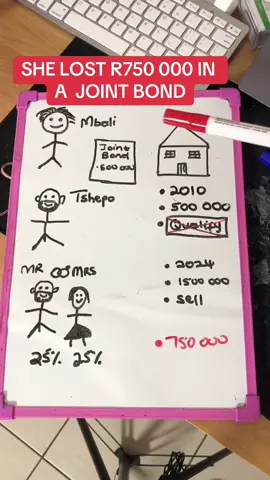 SHE LOST R750 000 IN
A JOINT BOND
Mbali
Joint
Bond
500 000
Tshepo
• 2010
• 500 000
• Qualify
MR MRS
• 2024
• 1500 000
• Sell
25% 25%
• 750 000